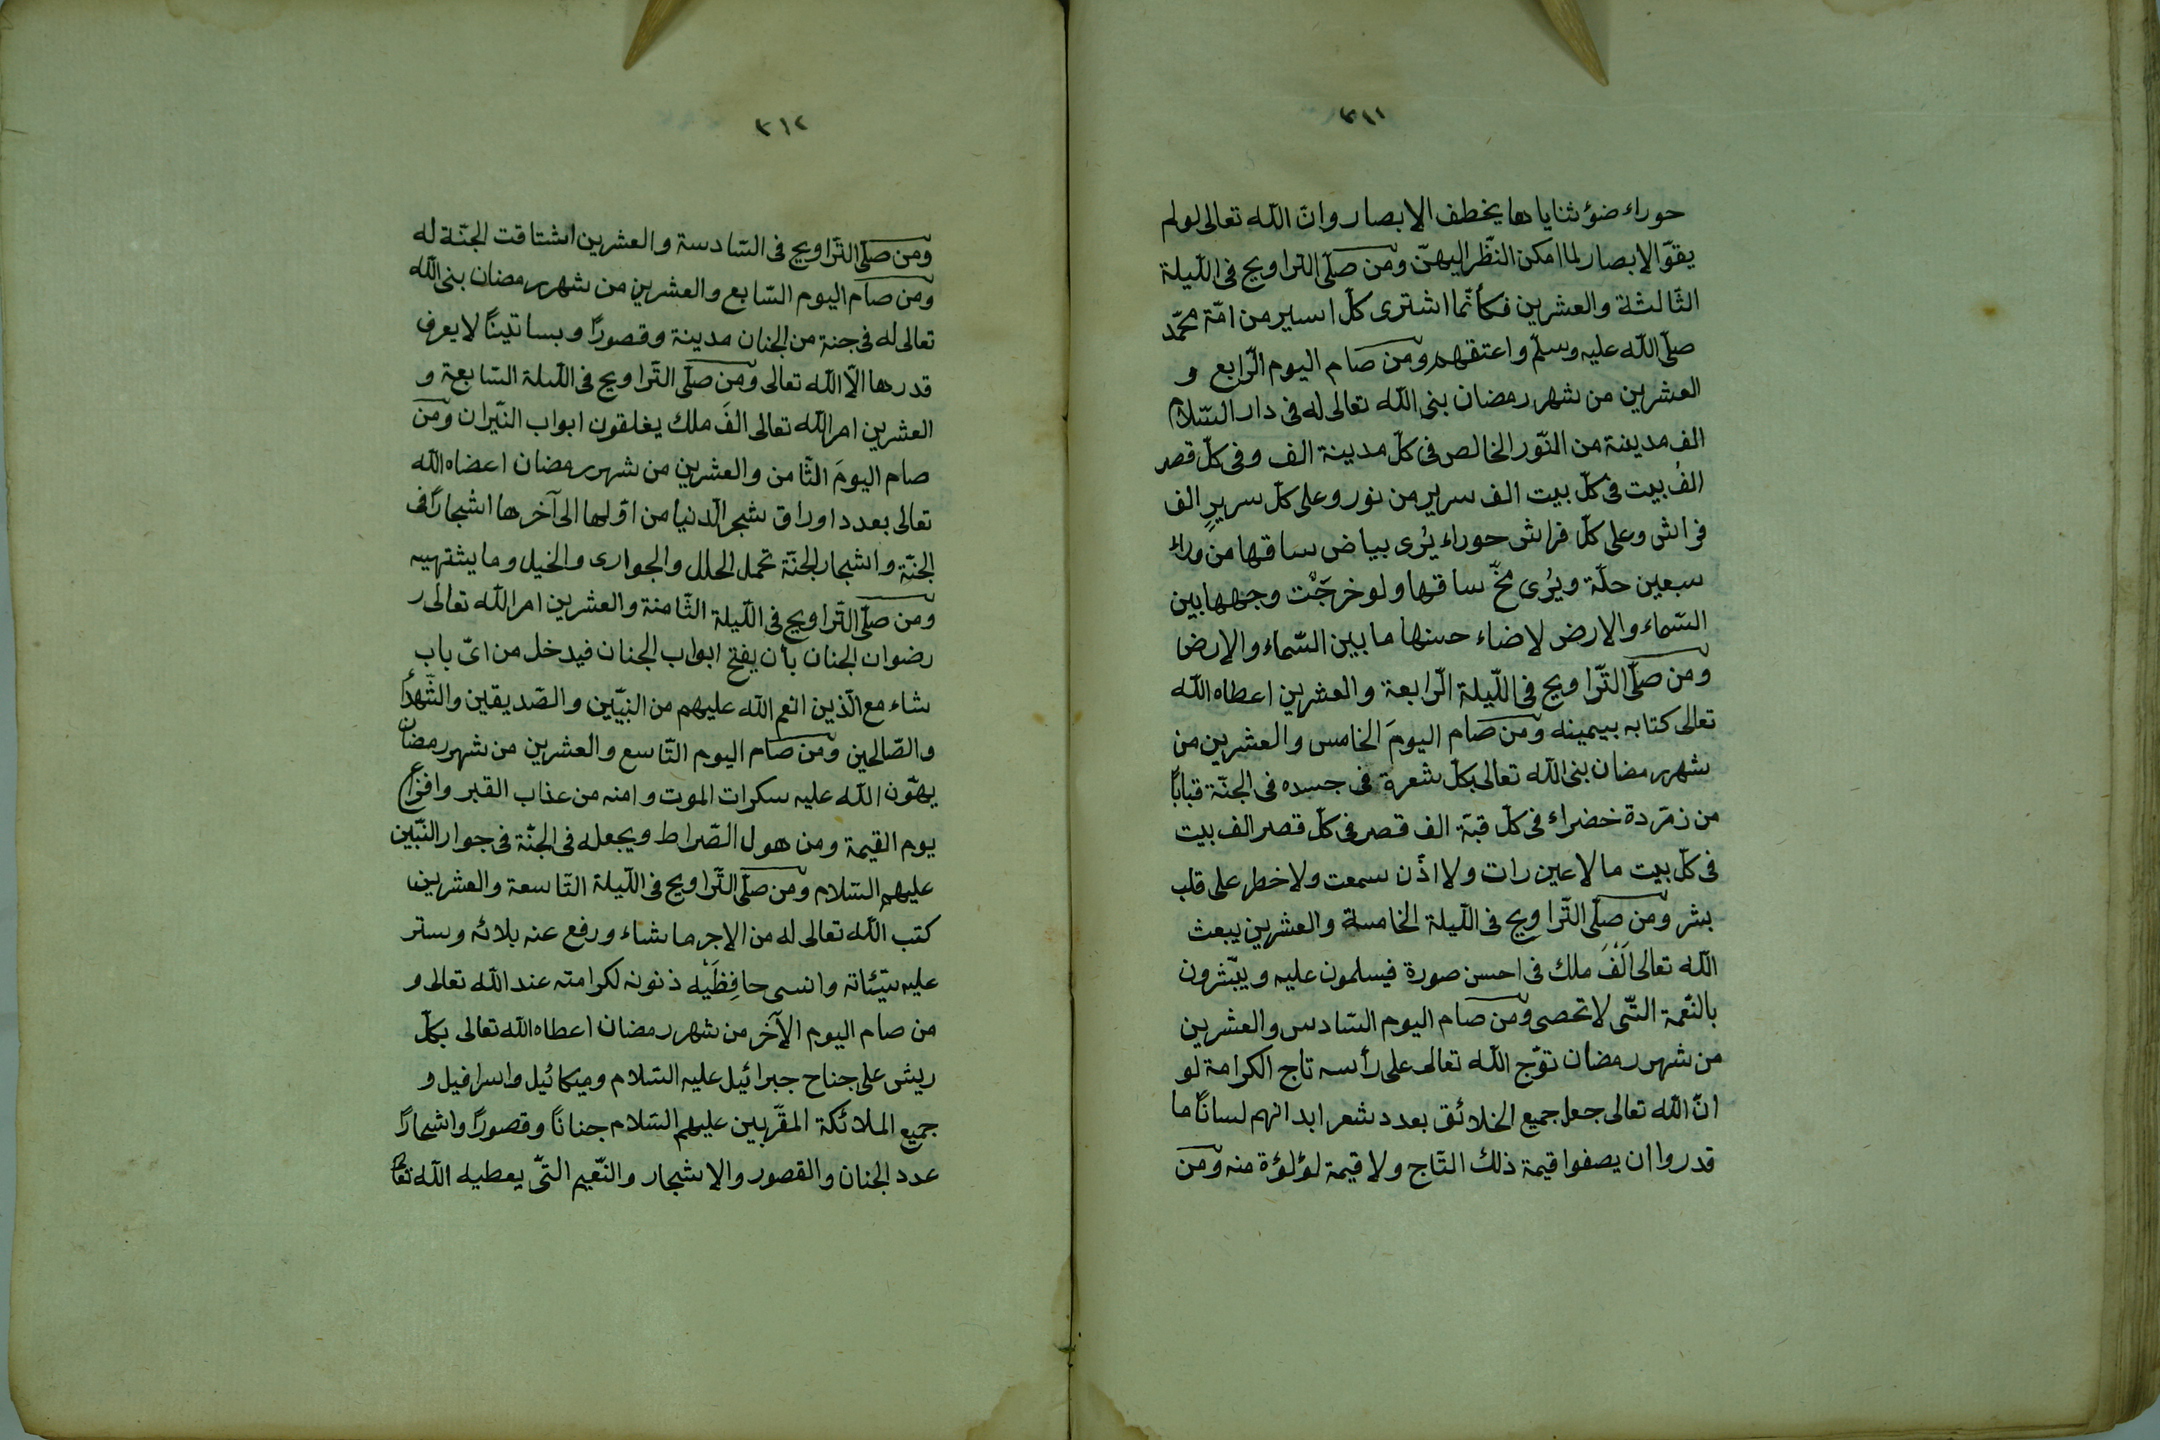 ٣١١
حوراء ضؤ ثناياها يخطف الابصار وانّ الله تعالى لو لم
يقوّ الابصار لما امكن النّظر اليهنّ ومن صلّى التّراويح فى اللّيلة
الثّالثة والعشرين فكأنّما اشترى كلّ اسير من امّة محمّد
صلّى الله عليه وسلّم واعتقهم ومن صام اليوم الرّابع و
العشرين من شهر رمضان بنى الله تعالى له فى دار السّلام
الف مدينة من النّور الخالص فى كلّ مدينة الف وفى كلّ قصر
الفُ بيت فى كلّ بيت الف سرير من نور وعلى كلّ سريرٍ الف
فراش وعلى كلّ فراش حوراء يُرى بياض ساقها من وراء
سبعين حلّة ويُرى مخّ ساقها ولو خرجَتْ وجهها بين
السّماء والارض لاضاء حسنها ما بين السّماء والارض
ومن صلّى التّراويح فى اللّيلة الرّابعة والعشرين اعطاه الله
تعالى كتابه بيمينه ومن صام اليومَ الخامس والعشرين من
شهر رمضان بنى الله تعالى بكلّ شعرة فى جسده فى الجنّة قبابًا
من زمرّدة خضراء فى كلّ قبّة الف قصر فى كلّ قصر الف بيت
فى كلّ بيت ما لا عين رات ولا اذُن سمعت ولا خطر على قلب
بشر ومن صلّى التّراويح فى اللّيلة الخامسة والعشرين يبعث
الله تعالى اَلْفَ ملك فى احسن صورة فيسلمون عليه ويبّشرون
بالنّعمة التّى لا تحصى ومن صام اليوم السّادس والعشرين
من شهر رمضان توّج الله تعالى على رأسه تاج الكرامة لو
انّ الله تعالى جعل جميع الخلائق بعدد شعر ابدانهم لسانًا ما
قدروا ان يصفوا قيمة ذلك التّاج ولا قيمة لؤلؤة منه ومن
٣١٢
ومن صلّى التّراويح فى السّادسة والعشرين اشتاقت الجنّة له
ومن صام اليوم السّابع والعشرين من شهر رمضان بنى الله
تعالى له فى جنة من الجنان مدينة وقصورًا وبساتينًا لا يعرف
قدرها الّا الله تعالى ومن صلّى التّراويح فى اللّيلة السّابعة و
العشرين امر الله تعالى الفَ ملك يغلقون ابواب النّيران ومن
صام اليومَ الثّامن والعشرين من شهر رمضان اعضاه الله
تعالى بعدد اوراق شجر الّدنيا من اوّلها الى آخرها اشجارًا فى
الجنّة واشجار الجنّة تحمل الحلل والجوارى والخيل وما يشتهيه
ومن صلّى التّراويح فى اللّيلة الثّامنة والعشرين امر الله تعالى ر
رضوان الجنان بأن يفتح ابواب الجنان فيدخل من اىّ باب
شاء مع الّذين انعم الله عليهم من النبيّين والصّديقين والشّهدأ
والصّالحين ومن صام اليوم التّاسع والعشرين من شهر رمضان
يهّون الله عليه سكرات الموت وامنه من عذاب القبر وافزاع
يوم القيمة ومن هول الصّراط ويجعله فى الجنّة فى جوار النّبّين
عليهم السّلام ومن صلّى التّراويح فى اللّيلة التّاسعة والعشرين
كتب الله تعالى له من الاجر ما شاء ورفع عنه بلائه وستر
عليه سيّئاته وانسى حافِظَيْه ذنونه لكرامته عند الله تعالى و
من صام اليوم الآخر من شهر رمضان اعطاه الله تعالى بكلّ
ريش على جناح جبرائيل عليه السّلام وميكائيل واسرافيل و
جميع الملائكة المقرّبين عليهم السّلام جنانًا وقصورًا واشجارًا
عدد الجنان والقصور والاشجار والنّعيم التىّ يعطيه الله تعا